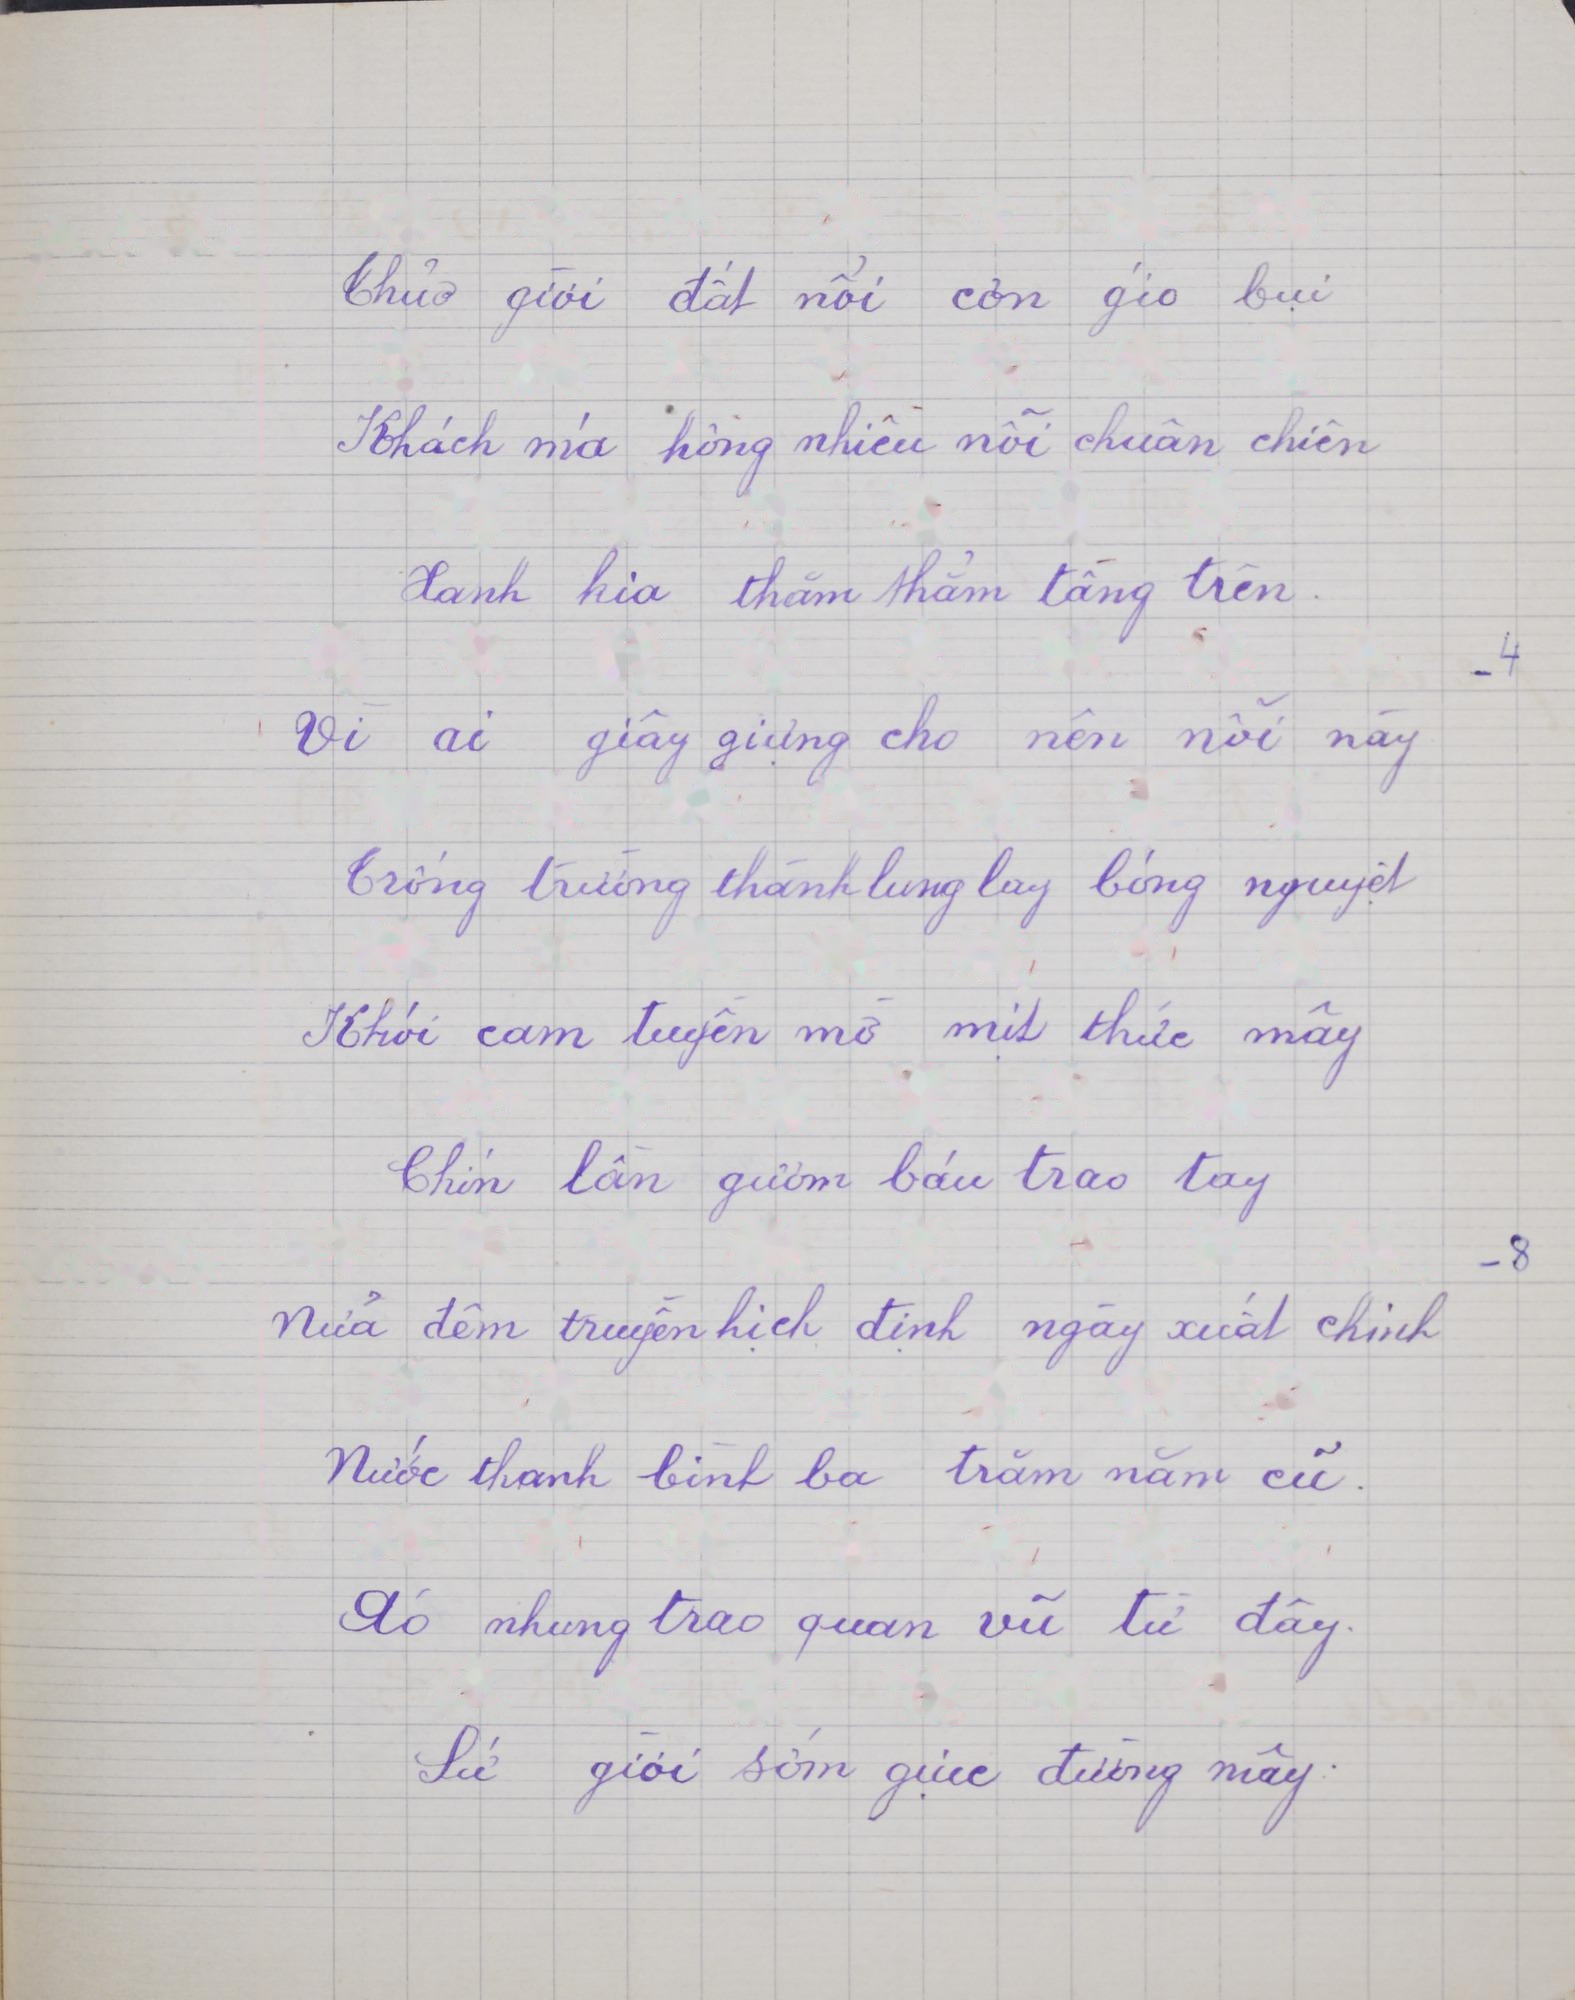 Thủơ giời đất nổi cơn gió bụi
Khách má hồng nhiều nỗi chuân chiên
Xanh kia thăm thẳm tầng trên.
-4
Vì ai giây giựng cho nên nỗi này
Trống trường thành lung lay bóng nguyệt
Khói cam tuyền mờ mịt thức mây
Chín lần gươm báu trao tay
-8
Nửa đêm truyền hịch định ngày xuất chinh
Nước thanh bình ba trăm năm cũ.
Aó nhung trao quan vũ từ đây.
Sứ giời sớm giục đường mây.